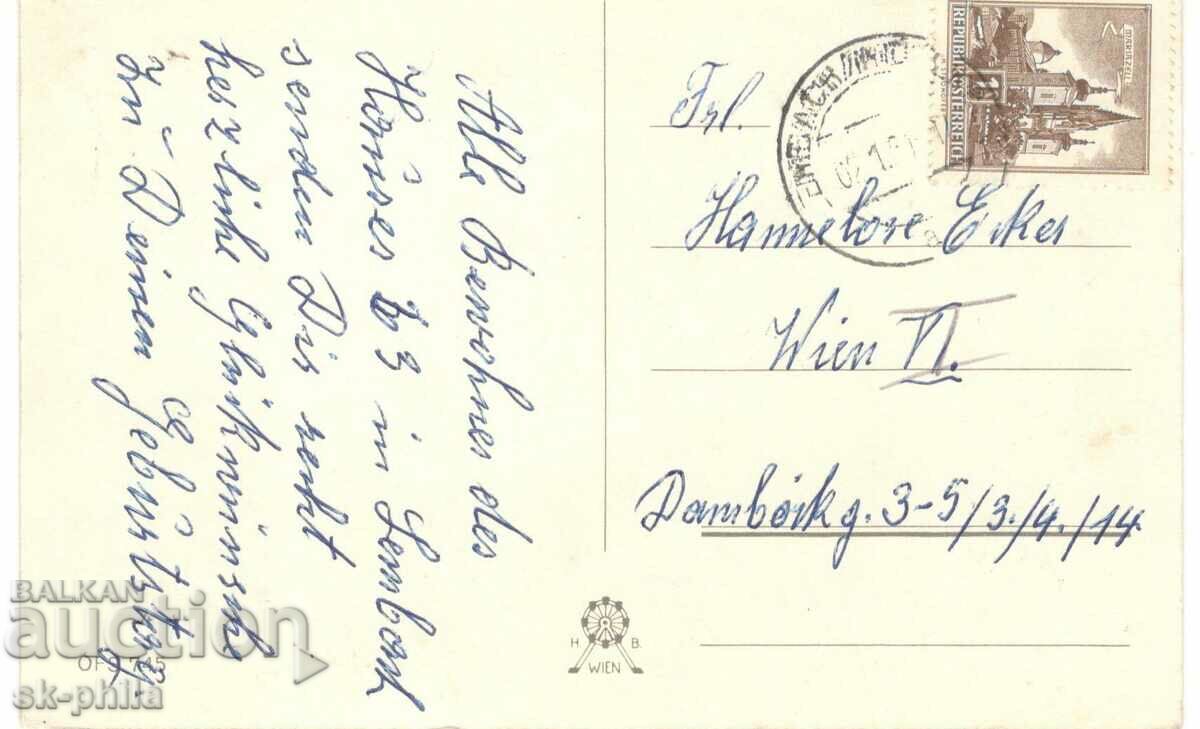 Alle Bewohner des
Hauses 63 in Lembach
senden Dir recht
herzliche Glückwünsche
zu Deinem Geburtstag.
Frl.
Hannelore Ecker
Wien VI.
Damböckg. 3-5/3./4./14
REPUBLIK ÖSTERREICH
MARIAZELL
H B.
WIEN
OFS 745
BALKAN
auction
sk-phila